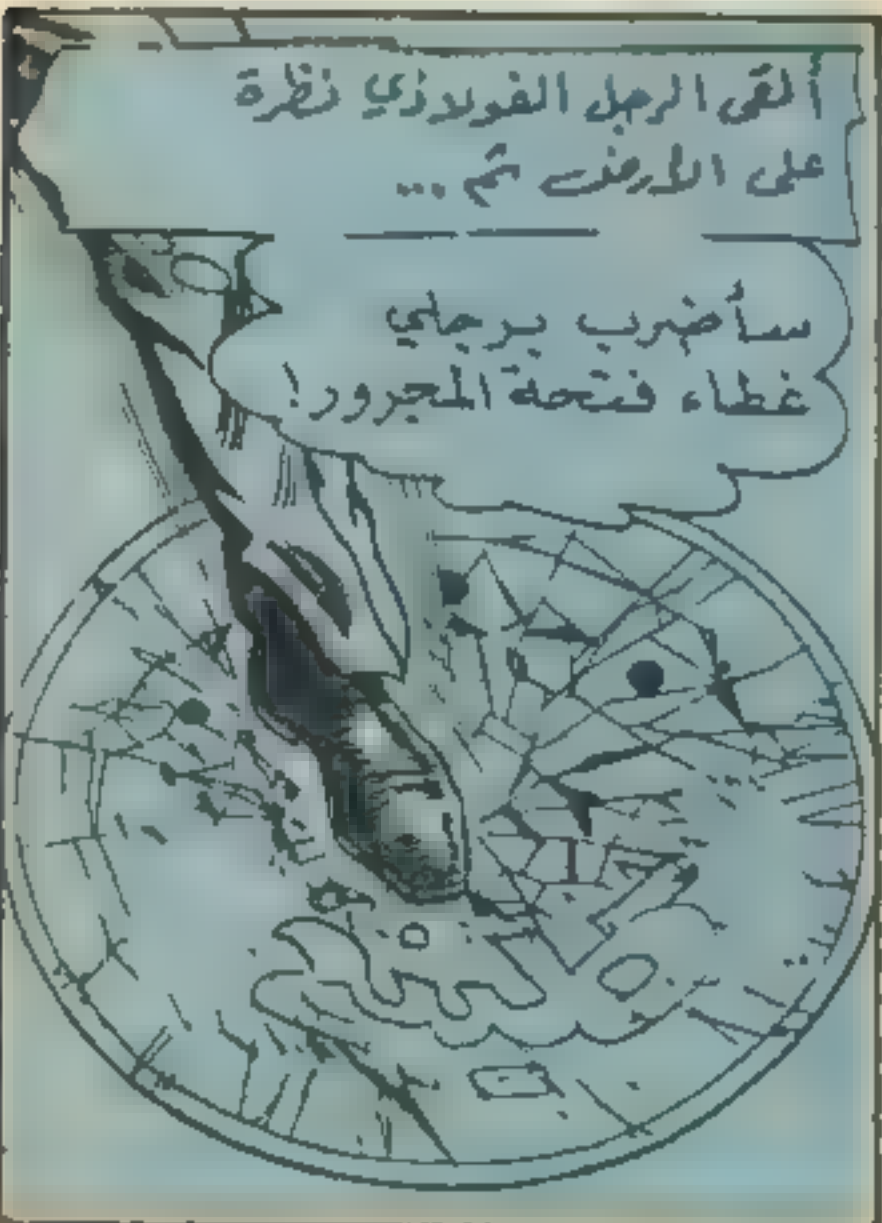 ألقى الرجل الفولاذي نظرة
على الأرض ثم ...
سأضرب برجلي
غطاء فتحة المجرور!